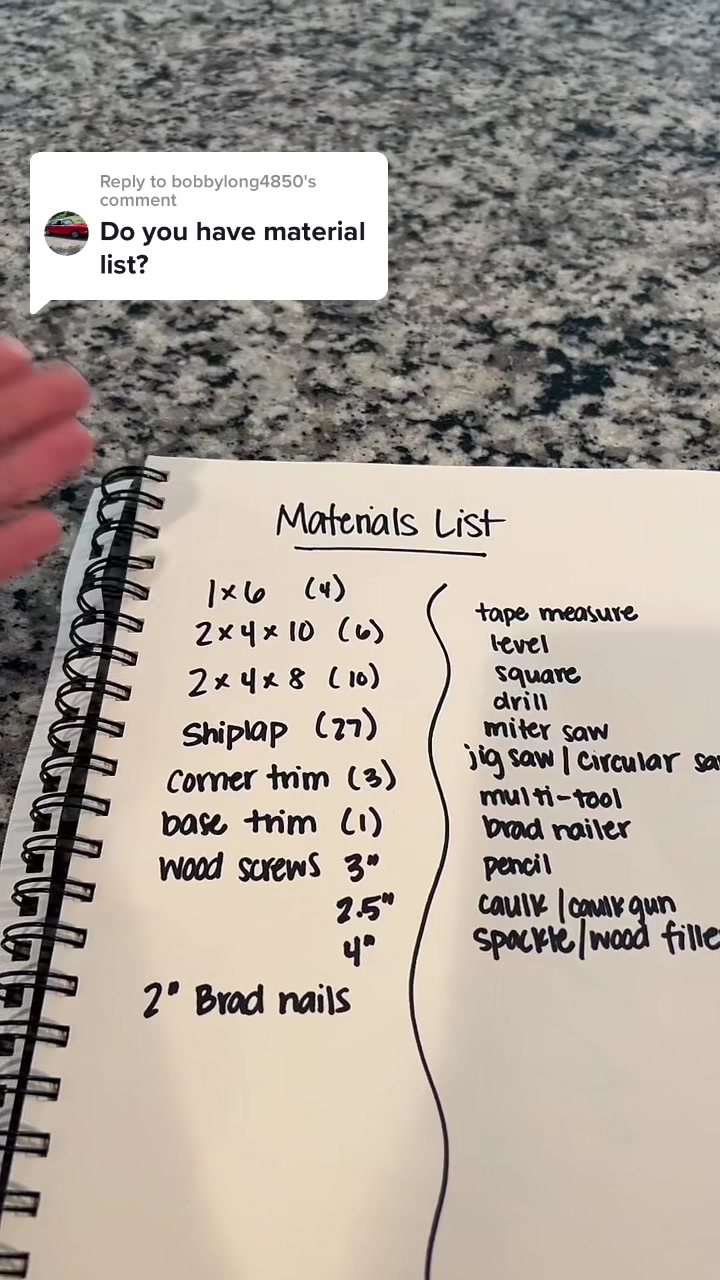 Reply to bobbylong4850's
comment
Do you have material
list?
Materials List
1x6 (4)
2x4x10 (6)
2x4x8 (10)
Shiplap (27)
corner trim (3)
base trim (1)
wood screws 3"
2.5"
4"
2" Brad nails
tape measure
level
square
drill
miter saw
jig saw | circular sa
multi-tool
brad nailer
pencil
caulk | caulk gun
spackle/wood fille